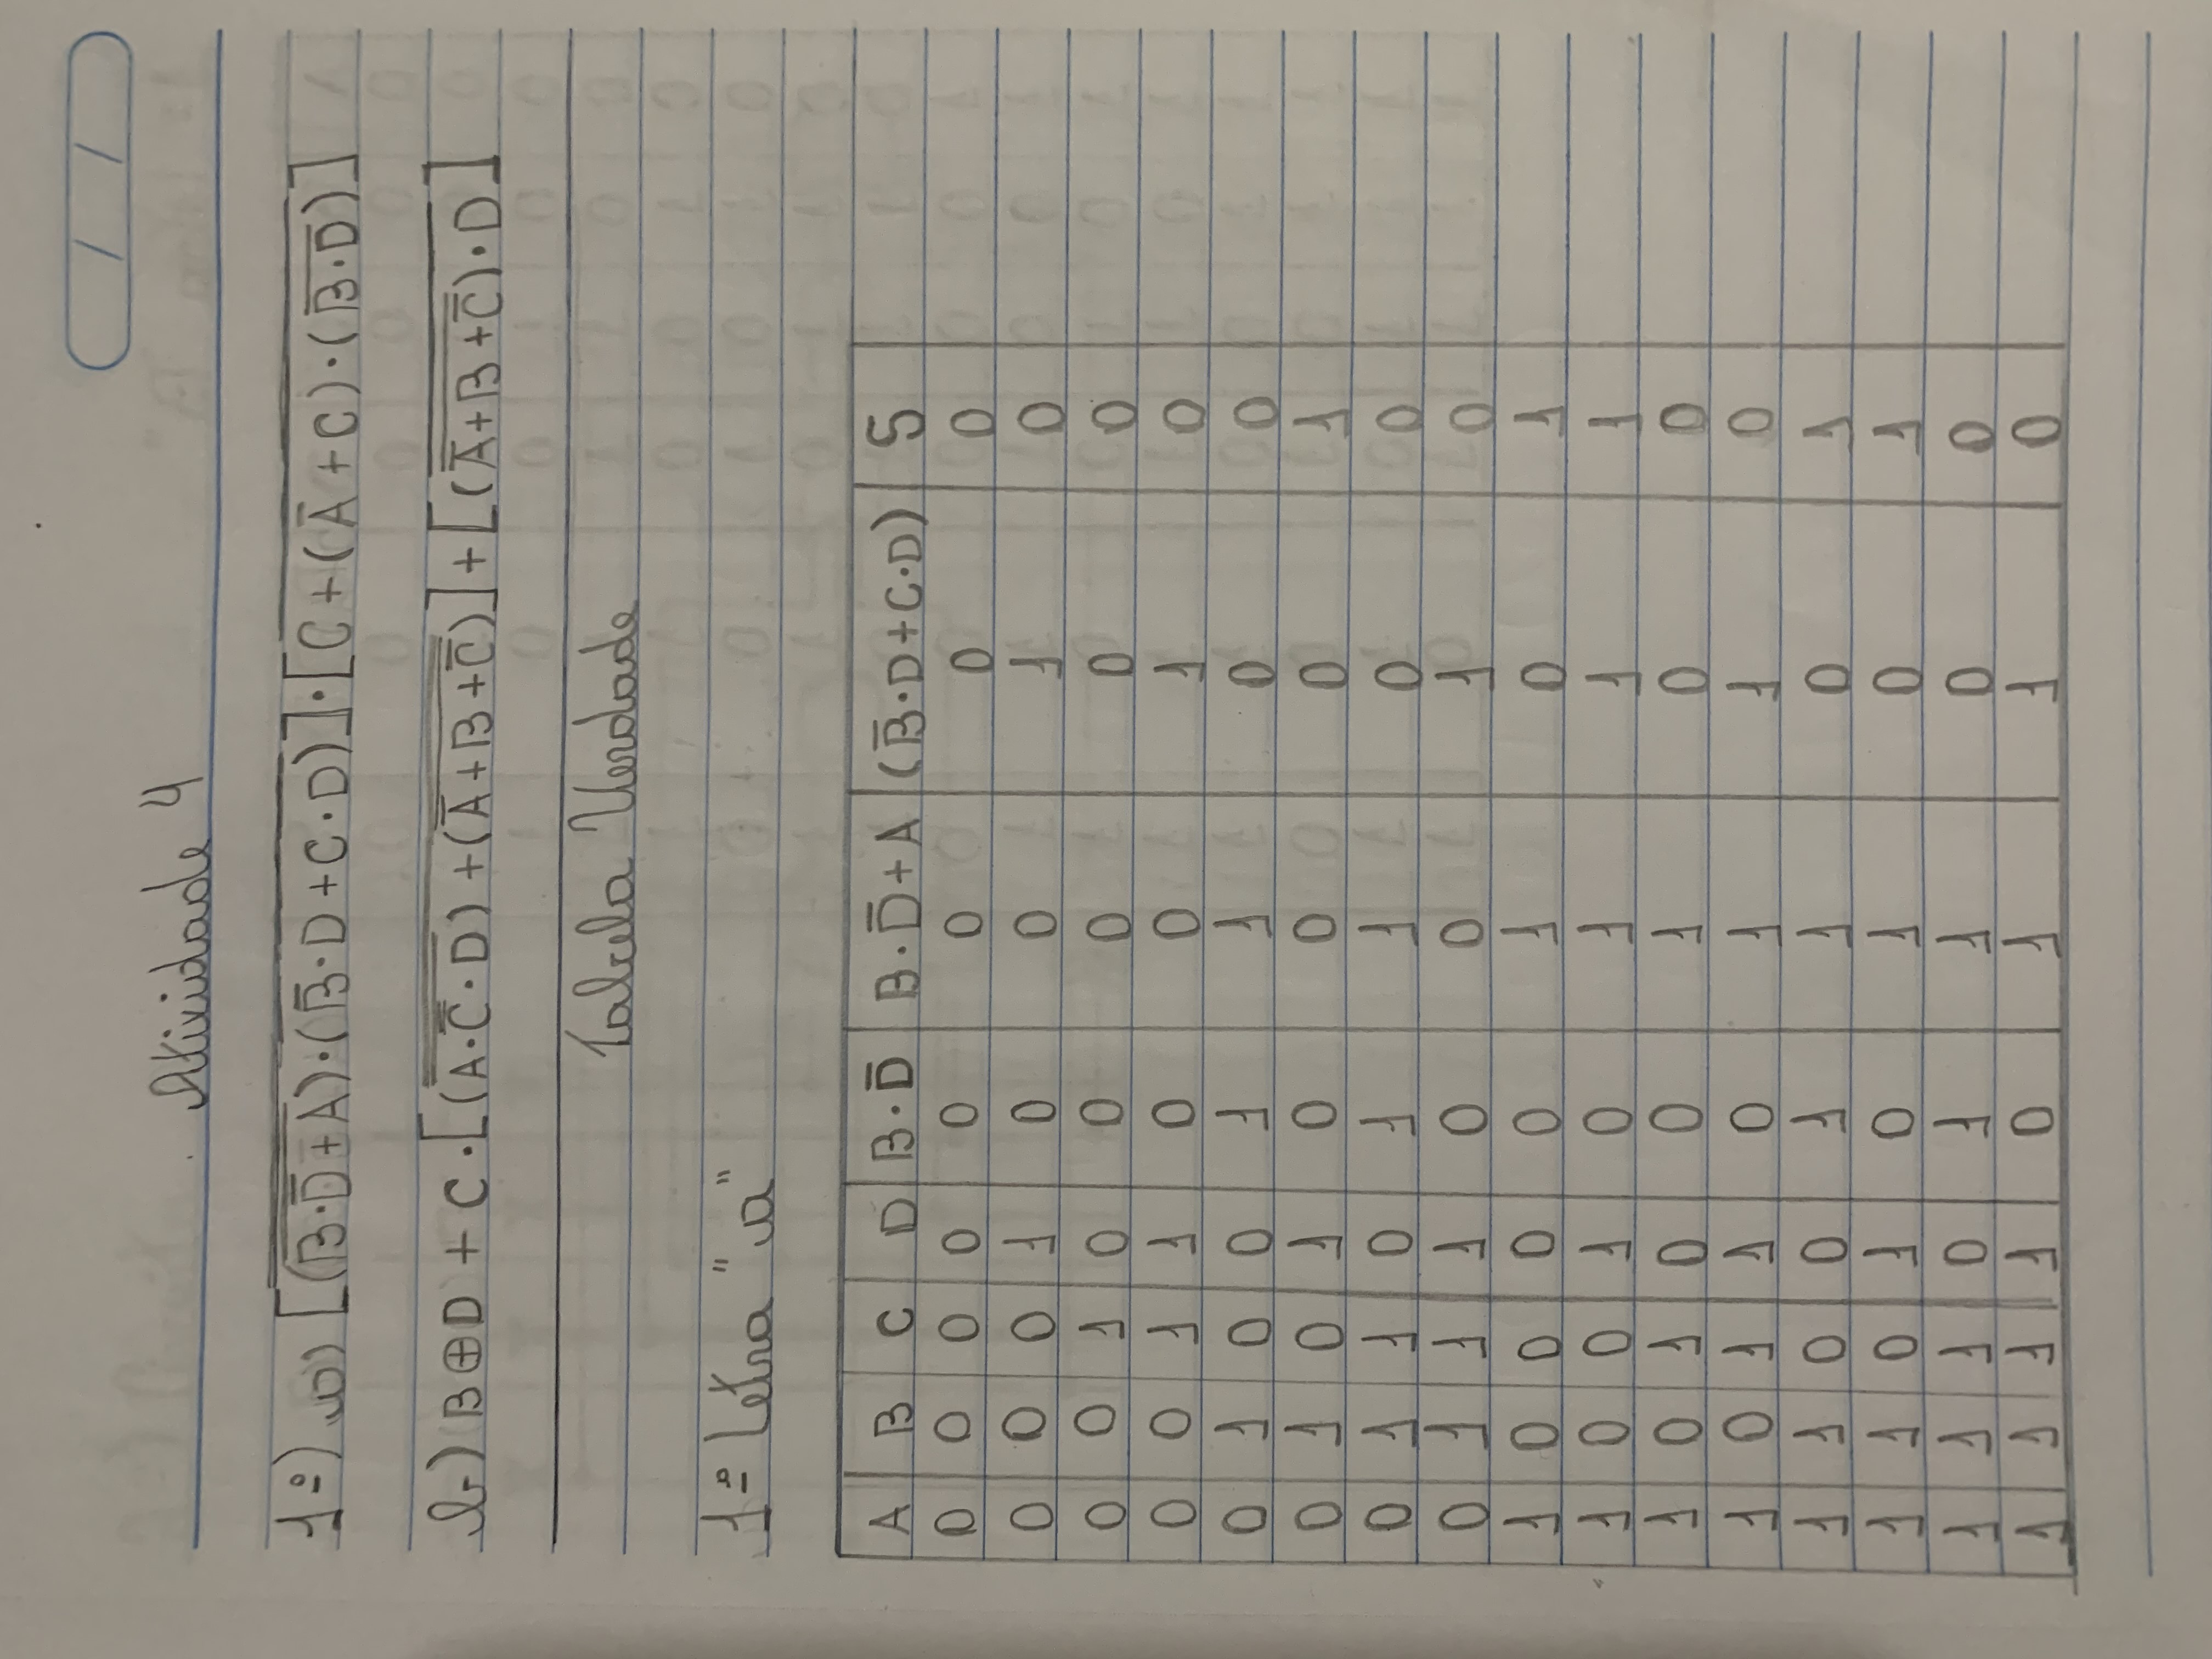 / /
Atividade 4
1º) a) [(\overline{\overline{B·\overline{D}+A})·(\overline{B}·D+C·D)}]·[\overline{C+(\overline{A}+C)·(\overline{B·D})}]
b) B⊕D + C·[(\overline{\overline{A·\overline{C}·D})+(\overline{\overline{A}+B+\overline{C}}})]+[(\overline{\overline{\overline{A}+B+\overline{C}})·D}]
Tabela Verdade
1º Letra "a"
A B C D B·D̅ B·D̅+A (B̅·D+C·D) S
0 0 0 0 0 0 0 0
0 0 0 1 0 0 1 0
0 0 1 0 0 0 0 0
0 0 1 1 0 0 1 0
0 1 0 0 1 1 0 0
0 1 0 1 0 0 0 1
0 1 1 0 1 1 0 0
0 1 1 1 0 0 1 0
1 0 0 0 0 1 0 1
1 0 0 1 0 1 1 1
1 0 1 0 0 1 0 0
1 0 1 1 0 1 1 0
1 1 0 0 1 1 0 1
1 1 0 1 0 1 0 1
1 1 1 0 1 1 0 0
1 1 1 1 0 1 1 0